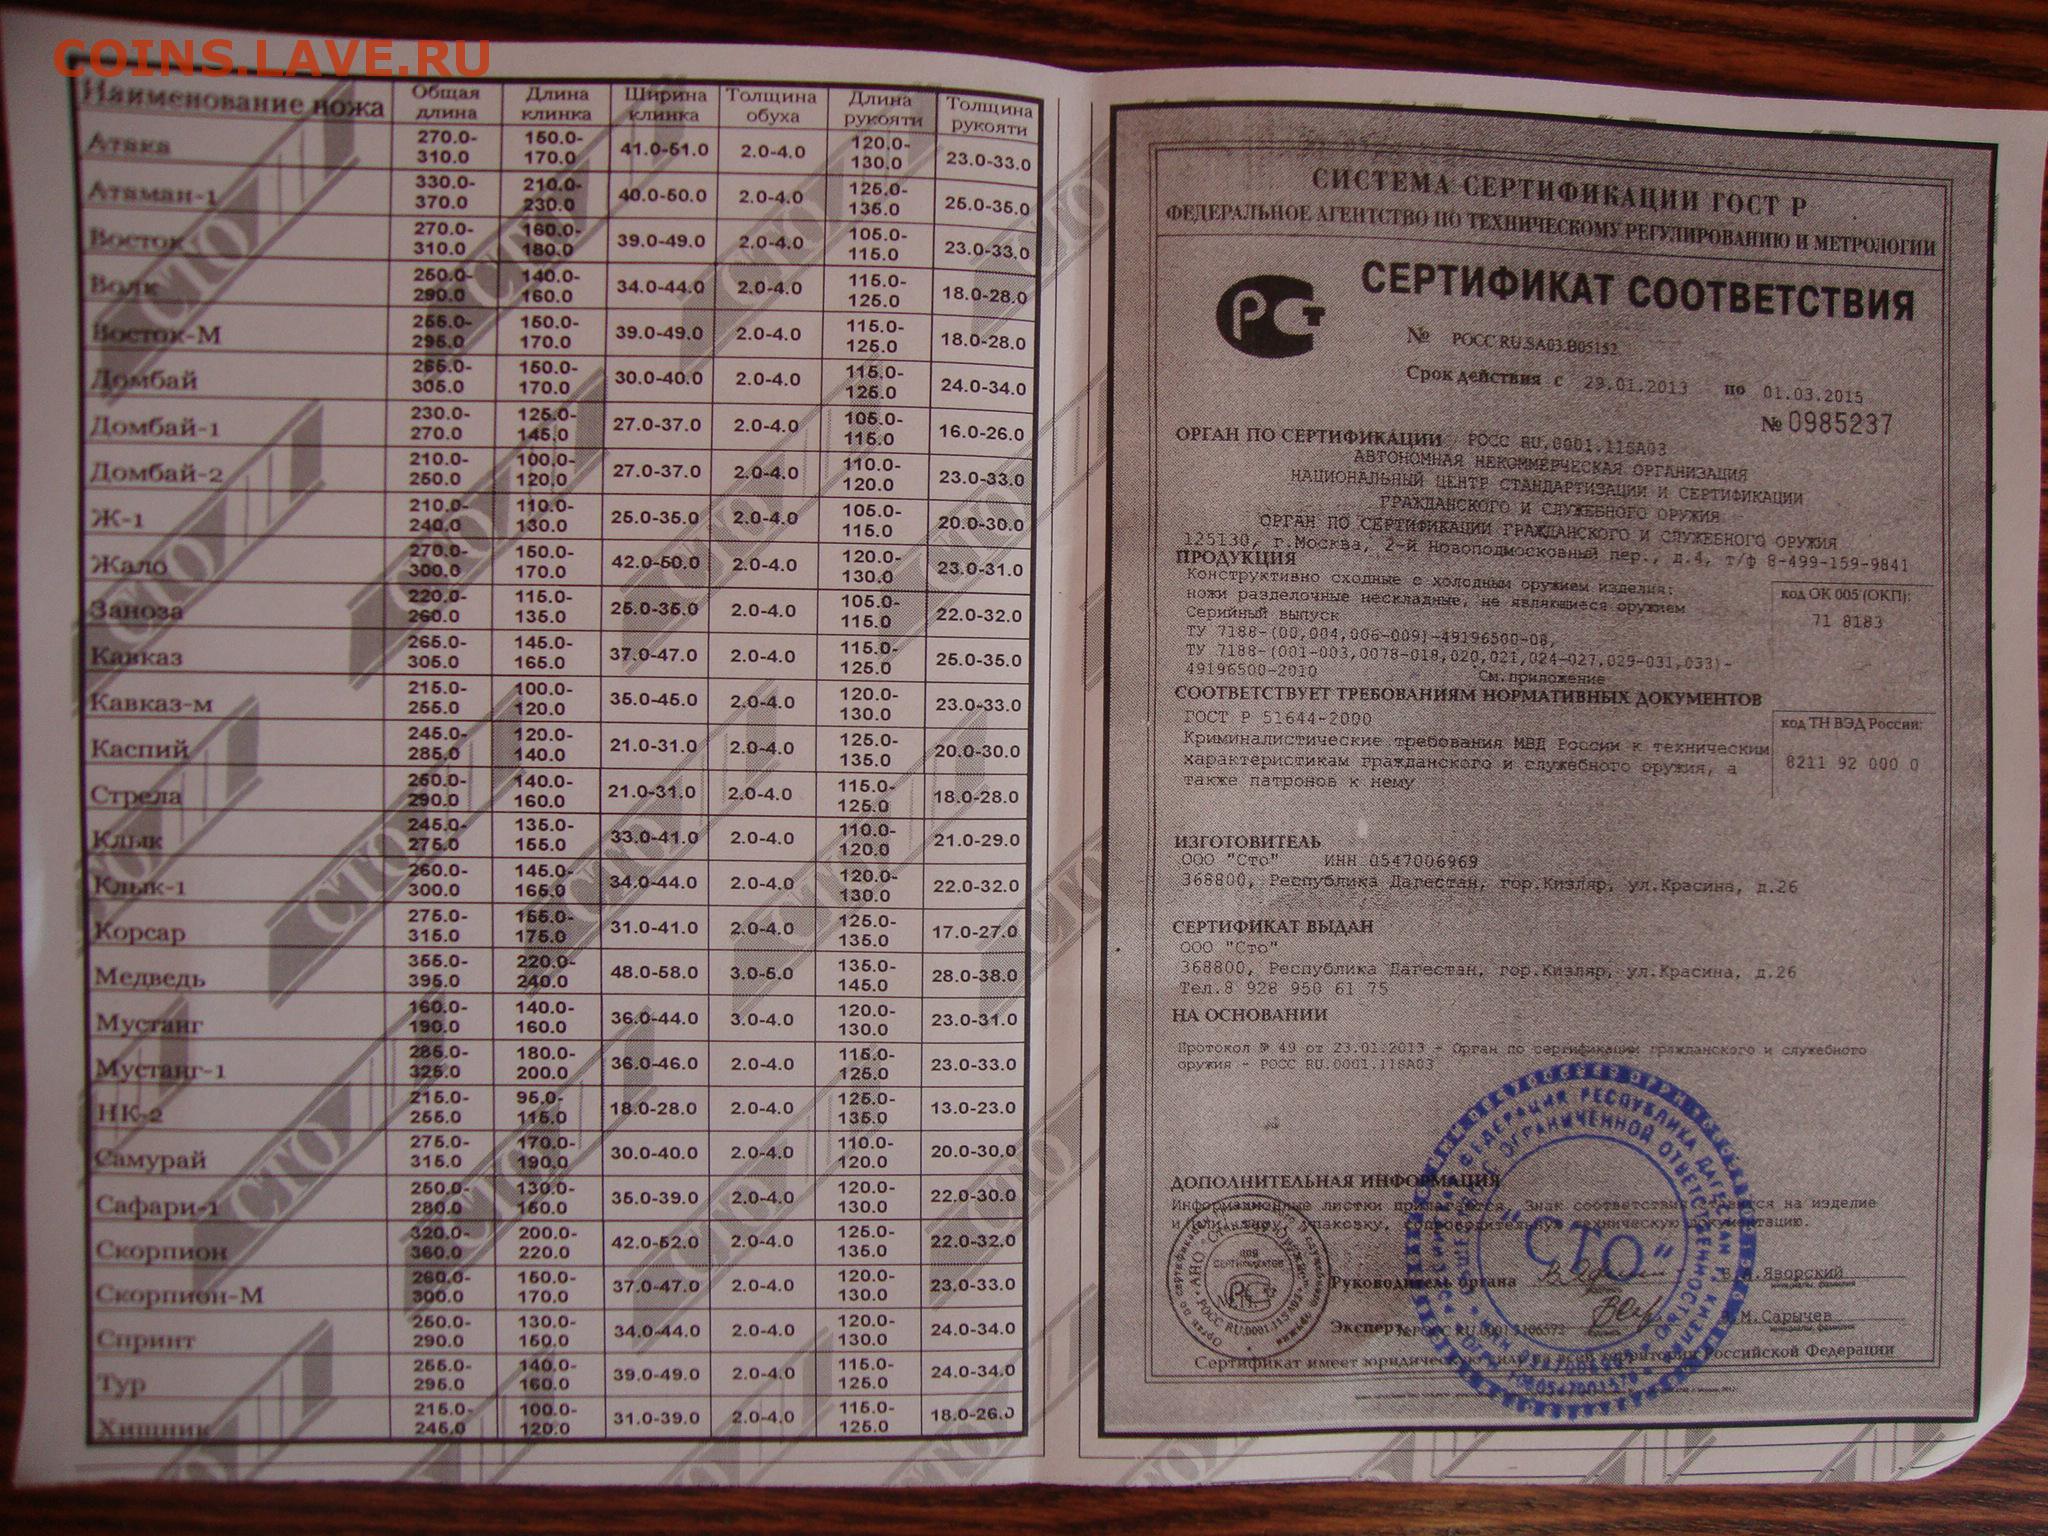 COINS.LAVE.RU
Наименование ножа Общая длина Длина клинка Ширина клинка Толщина обуха Длина рукояти Толщина рукояти
Атака 270.0-310.0 150.0-170.0 41.0-51.0 2.0-4.0 120.0-130.0 23.0-33.0
Атаман-1 330.0-370.0 210.0-230.0 40.0-50.0 2.0-4.0 125.0-135.0 25.0-35.0
Восток 270.0-310.0 160.0-180.0 39.0-49.0 2.0-4.0 105.0-115.0 23.0-33.0
Волк 250.0-290.0 140.0-160.0 34.0-44.0 2.0-4.0 115.0-125.0 18.0-28.0
Восток-М 255.0-295.0 150.0-170.0 39.0-49.0 2.0-4.0 115.0-125.0 18.0-28.0
Домбай 265.0-305.0 150.0-170.0 30.0-40.0 2.0-4.0 115.0-125.0 24.0-34.0
Домбай-1 230.0-270.0 125.0-145.0 27.0-37.0 2.0-4.0 105.0-115.0 16.0-26.0
Домбай-2 210.0-250.0 100.0-120.0 27.0-37.0 2.0-4.0 110.0-120.0 23.0-33.0
Ж-1 210.0-240.0 110.0-130.0 25.0-35.0 2.0-4.0 105.0-115.0 20.0-30.0
Жало 270.0-300.0 150.0-170.0 42.0-50.0 2.0-4.0 120.0-130.0 23.0-31.0
Заноза 220.0-260.0 115.0-135.0 25.0-35.0 2.0-4.0 105.0-115.0 22.0-32.0
Кавказ 265.0-305.0 145.0-165.0 37.0-47.0 2.0-4.0 115.0-125.0 25.0-35.0
Кавказ-м 215.0-255.0 100.0-120.0 35.0-45.0 2.0-4.0 120.0-130.0 23.0-33.0
Каспий 245.0-285.0 120.0-140.0 21.0-31.0 2.0-4.0 125.0-135.0 20.0-30.0
Стрела 250.0-290.0 140.0-160.0 21.0-31.0 2.0-4.0 115.0-125.0 18.0-28.0
Клык 245.0-275.0 135.0-155.0 33.0-41.0 2.0-4.0 110.0-120.0 21.0-29.0
Клык-1 260.0-300.0 145.0-165.0 34.0-44.0 2.0-4.0 120.0-130.0 22.0-32.0
Корсар 275.0-315.0 155.0-175.0 31.0-41.0 2.0-4.0 125.0-135.0 17.0-27.0
Медведь 355.0-395.0 220.0-240.0 48.0-58.0 3.0-5.0 135.0-145.0 28.0-38.0
Мустанг 160.0-190.0 140.0-160.0 36.0-44.0 3.0-4.0 120.0-130.0 23.0-31.0
Мустанг-1 285.0-325.0 180.0-200.0 36.0-46.0 2.0-4.0 115.0-125.0 23.0-33.0
НК-2 215.0-255.0 95.0-115.0 18.0-28.0 2.0-4.0 125.0-135.0 13.0-23.0
Самурай 275.0-315.0 170.0-190.0 30.0-40.0 2.0-4.0 110.0-120.0 20.0-30.0
Сафари-1 250.0-280.0 130.0-150.0 35.0-39.0 2.0-4.0 120.0-130.0 22.0-30.0
Скорпион 320.0-360.0 200.0-220.0 42.0-52.0 2.0-4.0 125.0-135.0 22.0-32.0
Скорпион-М 260.0-300.0 150.0-170.0 37.0-47.0 2.0-4.0 120.0-130.0 23.0-33.0
Спринт 250.0-290.0 130.0-150.0 34.0-44.0 2.0-4.0 120.0-130.0 24.0-34.0
Тур 255.0-295.0 140.0-160.0 39.0-49.0 2.0-4.0 115.0-125.0 24.0-34.0
Хищник 215.0-245.0 100.0-120.0 31.0-39.0 2.0-4.0 115.0-125.0 18.0-26.0
СИСТЕМА СЕРТИФИКАЦИИ ГОСТ Р
ФЕДЕРАЛЬНОЕ АГЕНТСТВО ПО ТЕХНИЧЕСКОМУ РЕГУЛИРОВАНИЮ И МЕТРОЛОГИИ
СЕРТИФИКАТ СООТВЕТСТВИЯ
№ РОСС RU.SA03.B05152
Срок действия с 29.01.2013 по 01.03.2015
№ 0985237
ОРГАН ПО СЕРТИФИКАЦИИ РОСС RU.0001.11SA03
АВТОНОМНАЯ НЕКОММЕРЧЕСКАЯ ОРГАНИЗАЦИЯ
НАЦИОНАЛЬНЫЙ ЦЕНТР СТАНДАРТИЗАЦИИ И СЕРТИФИКАЦИИ
ГРАЖДАНСКОГО И СЛУЖЕБНОГО ОРУЖИЯ
ОРГАН ПО СЕРТИФИКАЦИИ ГРАЖДАНСКОГО И СЛУЖЕБНОГО ОРУЖИЯ
125130, г.Москва, 2-й Новоподмосковный пер., д.4, т/ф 8-499-159-9841
ПРОДУКЦИЯ
Конструктивно сходные с холодным оружием изделия:
ножи разделочные нескладные, не являющиеся оружием
Серийный выпуск
ТУ 7188-(00,004,006-009)-49196500-08,
ТУ 7188-(001-003,0078-018,020,021,024-027,029-031,033)-
49196500-2010 См.приложение
код ОК 005 (ОКП):
71 8183
СООТВЕТСТВУЕТ ТРЕБОВАНИЯМ НОРМАТИВНЫХ ДОКУМЕНТОВ
ГОСТ Р 51644-2000
Криминалистические требования МВД России к техническим
характеристикам гражданского и служебного оружия, а
также патронов к нему
код ТН ВЭД России:
8211 92 000 0
ИЗГОТОВИТЕЛЬ
ООО "Сто" ИНН 0547006969
368800, Республика Дагестан, гор.Кизляр, ул.Красина, д.26
СЕРТИФИКАТ ВЫДАН
ООО "Сто"
368800, Республика Дагестан, гор.Кизляр, ул.Красина, д.26
Тел.8 928 950 61 75
НА ОСНОВАНИИ
Протокол № 49 от 23.01.2013 - Орган по сертификации гражданского и служебного
оружия - РОСС RU.0001.11SA03
ДОПОЛНИТЕЛЬНАЯ ИНФОРМАЦИЯ
Информационные листки прилагаются. Знак соответствия ставится на изделие
и упаковку, сопроводительную техническую документацию.
Руководитель органа Яворский
Эксперт М.Сарычев
Сертификат имеет юридическую силу на всей территории Российской Федерации
"СТО"